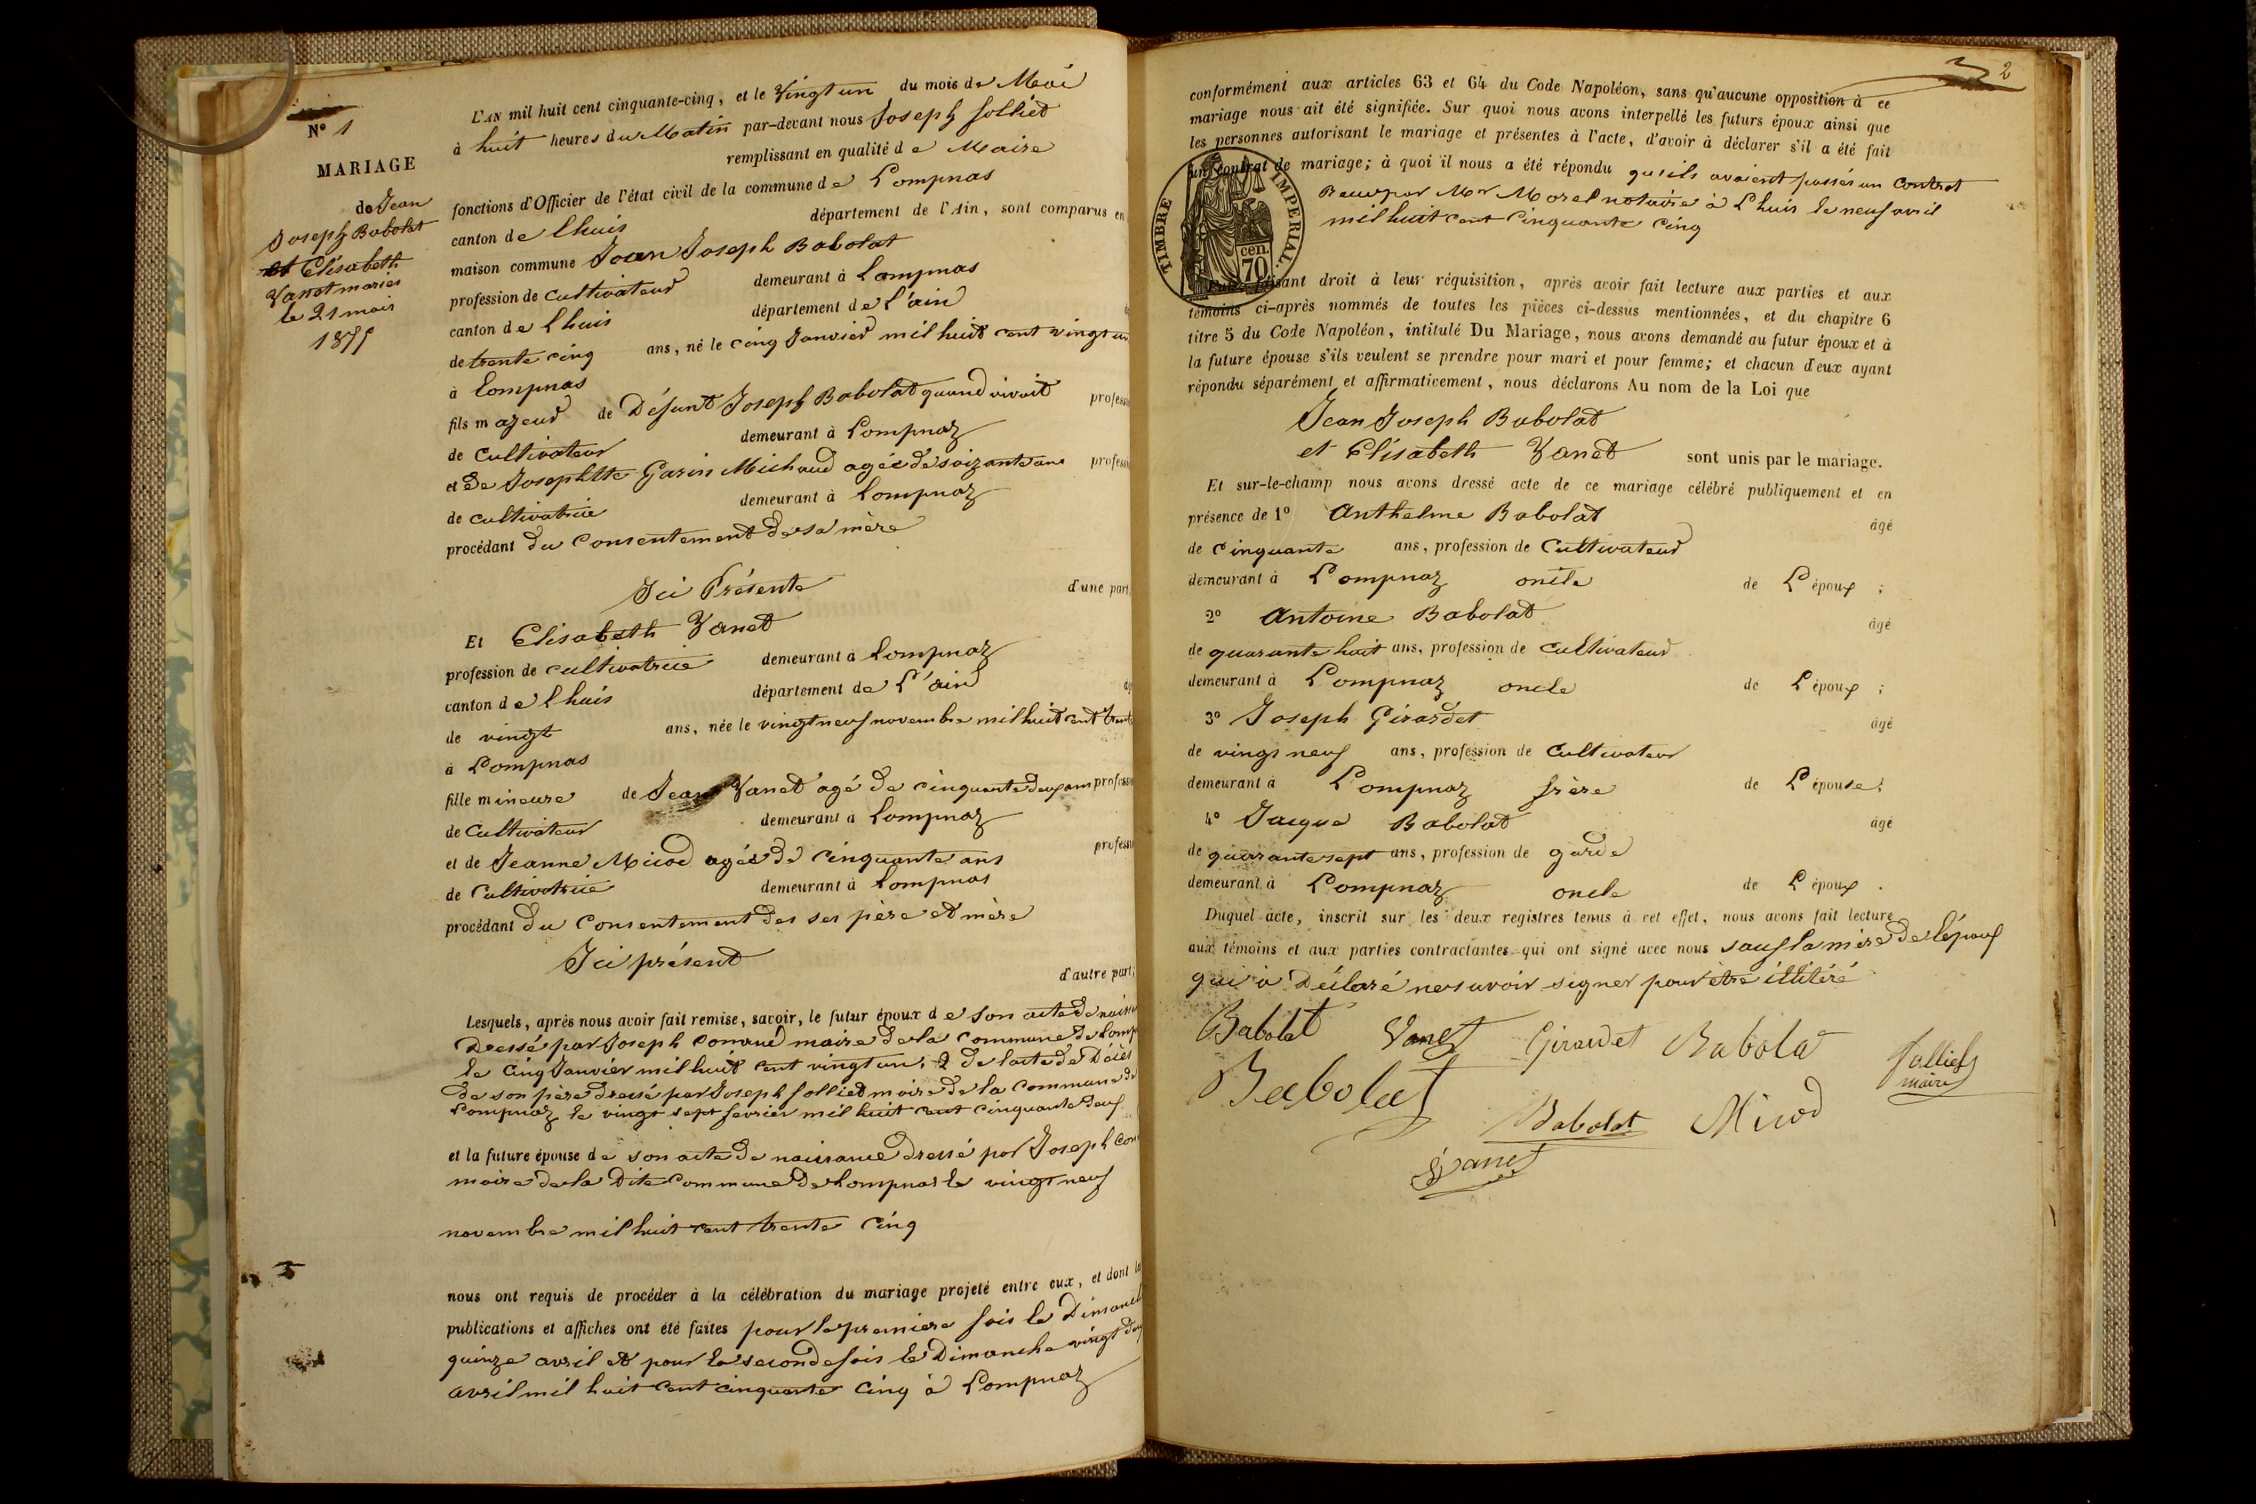 Nº 1
MARIAGE
de Jean
Joseph Babolat
et Elisabeth
Vanet mariés
le 21 mai
L'AN mil huit cent cinquante-cinq, et le Vingt un du mois de Mai
à huit heures du Matin par-devant nous Joseph Jolliet
remplissant en qualité de Maire
fonctions d'Officier de l'état civil de la commune de Lompnas
canton de Lhuis département de l'Ain, sont comparus en
maison commune Jean Joseph Babolat
profession de Cultivateur demeurant à Lompnas
canton de Lhuis département de L'ain
de trente cinq ans, né le cinq Janvier mil huit cent vingt un
à Lompnas
fils majeur de Défunt Joseph Babolat quand vivait profess
de Cultivateur demeurant à Lompnaz
et de Josephte Garin Michaud agée de soizante ans profess
de cultivatrice demeurant à Lompnaz
procédant du Consentement de sa mère
Ici Présente d'une part,
Et Elisabeth Vanet
profession de cultivatrice demeurant à Lompnaz
canton de Lhuis département de L'ain
de vingt ans, née le vingt neuf novembre mil huit cent trent
à Lompnas
fille mineure de Jean Vanet agé de cinquante deux ans profess
de Cultivateur demeurant à Lompnaz
et de Jeanne Micod agée de cinquante ans profess
de Cultivatrice demeurant à Lompnas
procédant du Consentement des ses père et mère
Ici présent d'autre part;
Lesquels, après nous avoir fait remise, savoir, le futur époux de son acte de naiss
Dressé par Joseph maire de la Commune de Lomp
le Cinq Janvier mil huit cent vingt un, 2 de l'acte de Décès
de son père dressé par Joseph Jolliet maire de la Commune de
Lompnaz le vingt sept fevrier mil huit cent cinquante deux
et la future épouse de son acte de naissance dressé par Joseph
maire de la Dite Commune de Lompnas le vingt neuf
novembre mil huit cent trente cinq
nous ont requis de procéder à la célébration du mariage projeté entre eux, et dont le
publications et affiches ont été faites pour la premiere fois le Dimanch
quinze avril et pour la seconde fois le Dimanche vingt deux
avril mil huit cent cinquante cinq à Lompnaz
2
conformément aux articles 63 et 64 du Code Napoléon, sans qu'aucune opposition à ce
mariage nous ait été signifiée. Sur quoi nous avons interpellé les futurs époux ainsi que
les personnes autorisant le mariage et présentes à l'acte, d'avoir à déclarer s'il a été fait
un contrat de mariage; à quoi il nous a été répondu qu'ils avaient passés un Contrat
Recu par Mr Morel notaire à Lhuis le neuf avril
mil huit cent Cinquante cinq
TIMBRE IMPERIAL.
70 cen.
faisant droit à leur réquisition, après avoir fait lecture aux parties et aux
témoins ci-après nommés de toutes les pièces ci-dessus mentionnées, et du chapitre 6
titre 5 du Code Napoléon, intitulé Du Mariage, nous avons demandé au futur époux et à
la future épouse s'ils veulent se prendre pour mari et pour femme; et chacun d'eux ayant
répondu séparément et affirmativement, nous déclarons Au nom de la Loi que
Jean Joseph Babolat
et Elisabeth Vanet sont unis par le mariage.
Et sur-le-champ nous avons dressé acte de ce mariage célébré publiquement et en
présence de 1º Anthelme Babolat âgé
de cinquante ans, profession de Cultivateur
demeurant à Lompnaz oncle de L'époux ;
2º Antoine Babolat âgé
de quarante huit ans, profession de Cultivateur
demeurant à Lompnaz oncle de L'époux ;
3º Joseph Girardet âgé
de vingt neuf ans, profession de Cultivateur
demeurant à Lompnaz frère de L'épouse ;
4º Jacque Babolat âgé
de quarante sept ans, profession de garde
demeurant à Lompnaz oncle de L'époux .
Duquel acte, inscrit sur les deux registres tenus à cet effet, nous avons fait lecture
aux témoins et aux parties contractantes qui ont signé avec nous sauf la mère de l'époux
qui à Déclaré ne savoir signer pour être illitéré
Babolat Vanet Girardet Babola Jolliet
maire
Babolat
Babolat Micod
Vanet